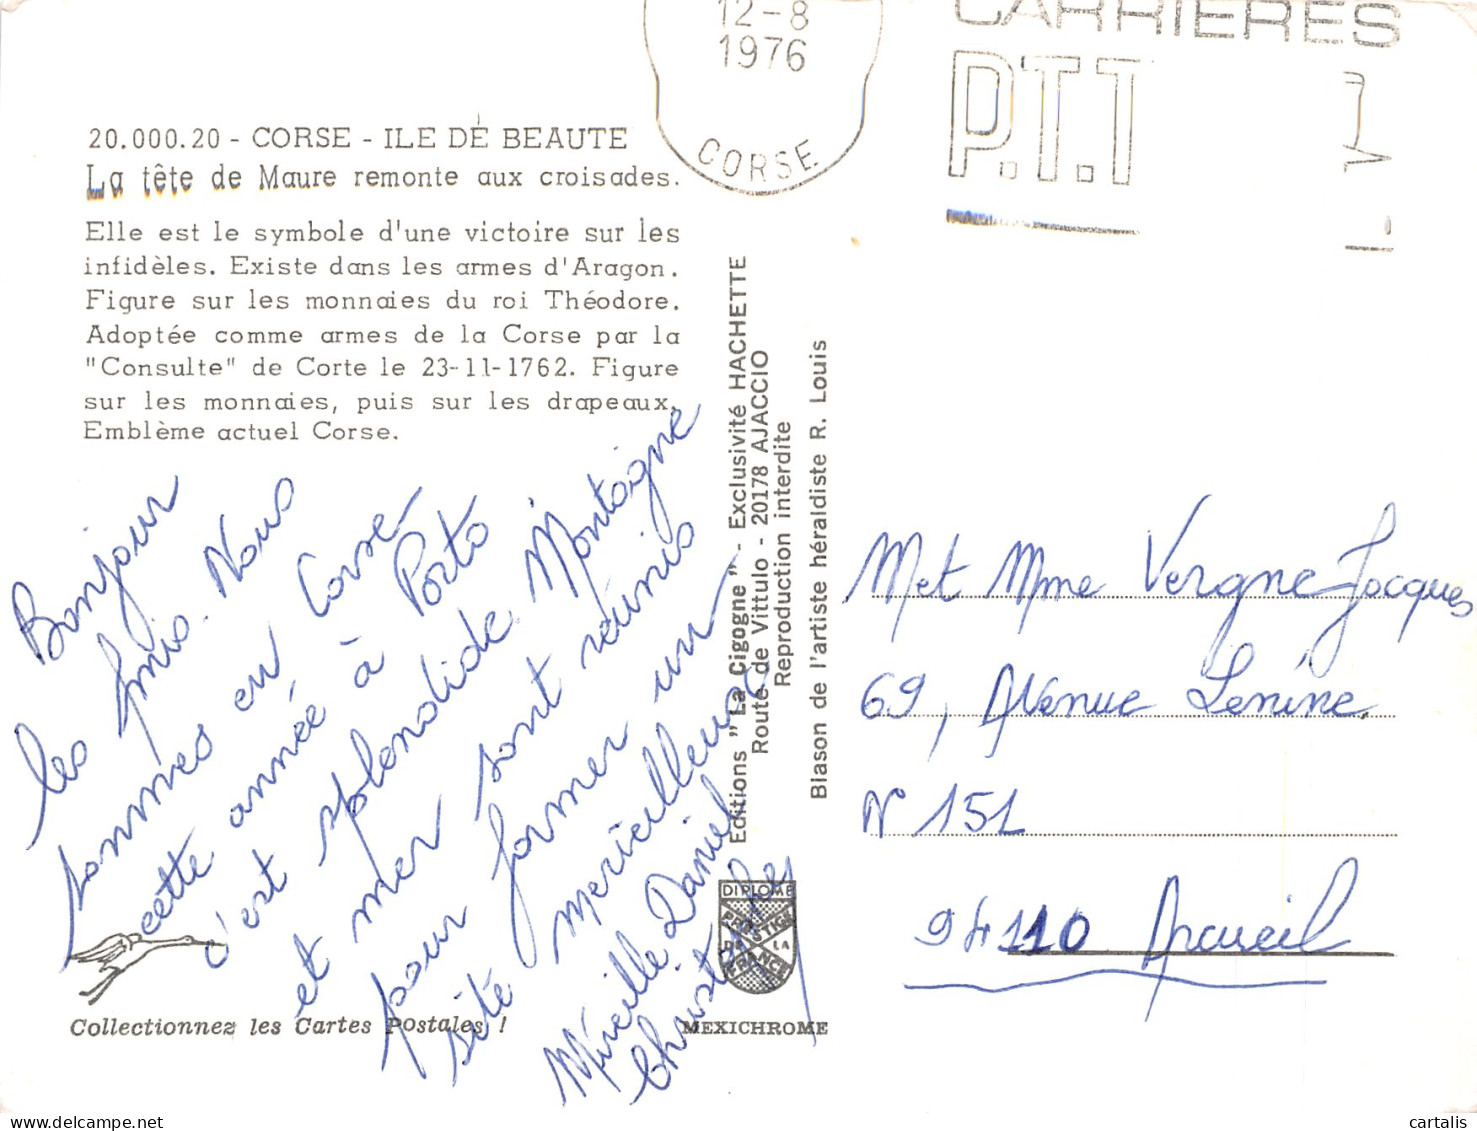 12-8
1976
CORSE
CARRIERES
P.T.T
20.000.20 - CORSE - ILE DE BEAUTE
La tête de Maure remonte aux croisades.
Elle est le symbole d'une victoire sur les
infidèles. Existe dans les armes d'Aragon.
Figure sur les monnaies du roi Théodore.
Adoptée comme armes de la Corse par la
"Consulte" de Corte le 23-11-1762. Figure
sur les monnaies, puis sur les drapeaux.
Emblème actuel Corse.
Bonjour
les Amis. Nous
sommes en Corse
cette année à Porto
c'est splendide. Montaigne
et mer sont réunis
pour former un
site merveilleux
Mireille Daniel
Christophe
Editions "La Cigogne" - Exclusivité HACHETTE
Route de Vittulo - 20178 AJACCIO
Reproduction interdite
Blason de l'artiste héraldiste R. Louis
Met Mme Vergne Jacques
69, Avenue Lenine
N° 151
94110 Arcueil
DIPLOME
PRESTIGE
DE LA
FRANCE
Collectionnez les Cartes Postales !
MEXICHROME
cartalis
www.delcampe.net